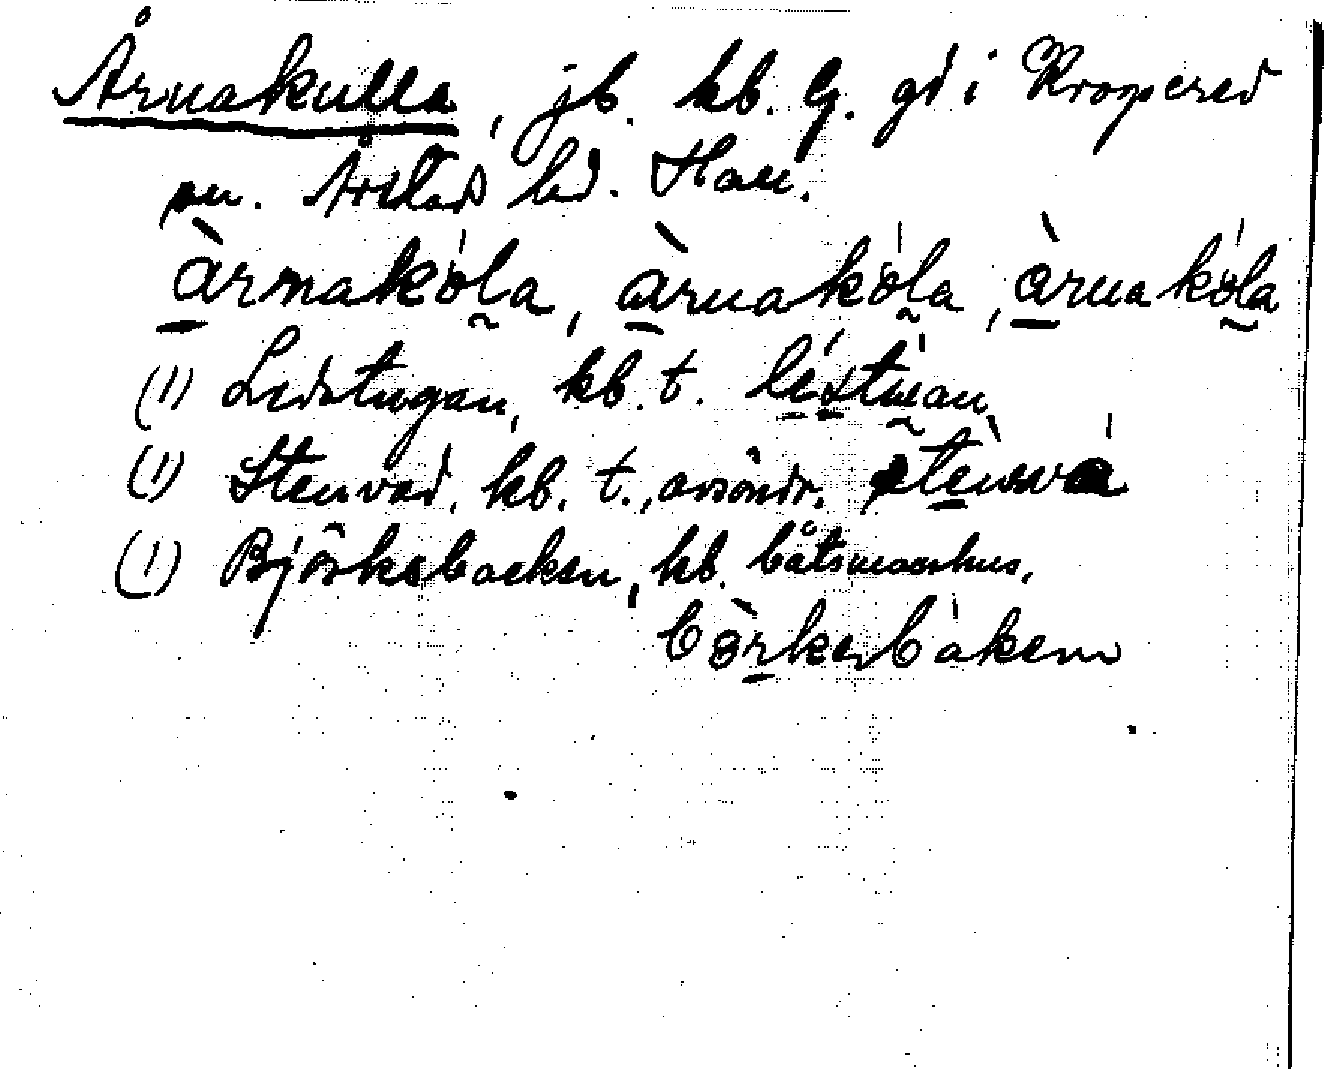 Årnakulla, jb. kb. G. gd i Kropered
sn. Årstad hd. Hall.
àrnakola, àrnakola, àrnakola
(1) Ledstugan, kb. t.
(1) Stenvad, kb. t., avsöndr. stensva
(1) Björkebacken, kb. båtsmanshus.
bòrkerbaken